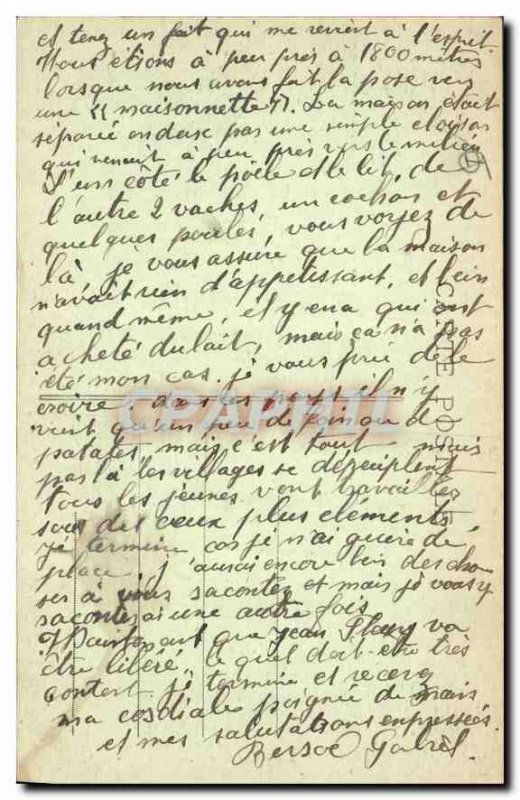 et tenez un fait qui me revient à l'esprit.
Nous étions à peu près à 1800 mètres
lorsque nous avons fait la pose vers
une "maisonnette". La maison était
séparée en deux pas une simple cloison
qui venait à peu près vers le milieu
d'un côté le poêle et le lit, de
l'autre 2 vaches, un cochon et
quelques poules, vous voyez de
là je vous assure que la maison
n'avait rien d'appétissant, et bien
quand même, il y en a qui ont
acheté du lait, mais ça n'a pas
été mon cas. je vous prie de le
croire, dans les pays il n'y
vient qu'un peu de foin ou de
patates, mais c'est tout, mais
pas là les villages se dépeuplent
tous les jeunes vont travailler
sous des cieux plus cléments
je termine car je n'ai guère de
place, j'aurai encore bien des cho
ses à vous raconter et mais je vous y
raconterai une autre fois
Maintenant que Jean va
être libéré, lequel doit être très
content. je termine et recevez
ma cordiale poignée de mais
et mes salutations empressées
Gabriel.
CARTE POSTALE
CPAPHIL